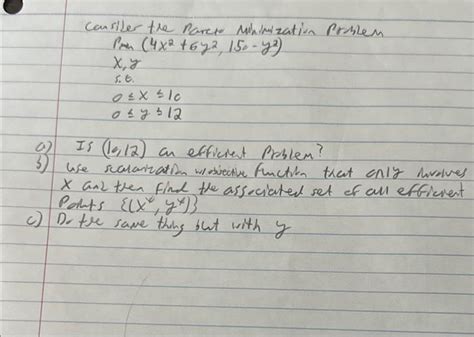 Consider the Pareto Minimization Problem
Pmin (4x² + 6y², 150 - y²)
x, y
s.t.
0 ≤ x ≤ 10
0 ≤ y ≤ 12
a) Is (10,12) an efficient Problem?
b) Use scalarization w/ objective function that only involves
x and then find the associated set of all efficient
Points {(x*, y*)}
c) Do the same thing but with y